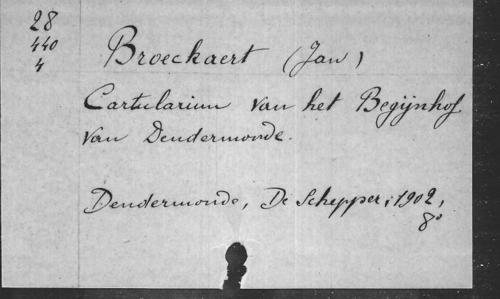 28
440
4
Broeckaert (Jan)
Cartularium van het Begijnhof
van Dendermonde.
Dendermonde, De Schepper, 1902,
8°